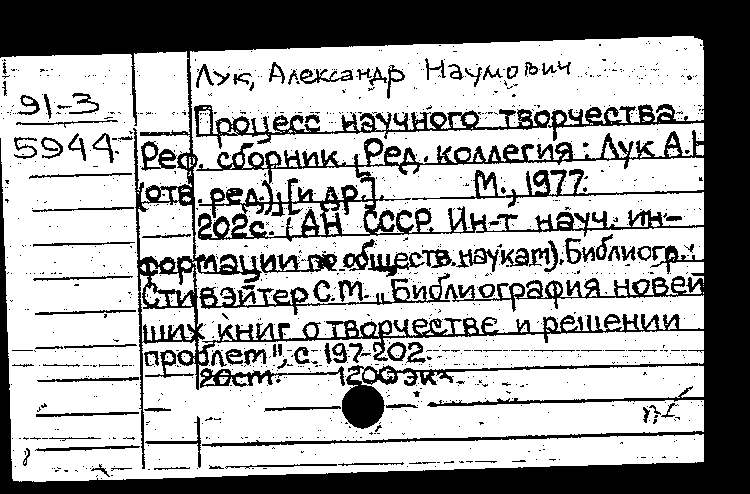 Лук, Александр Наумович
91-3
5944
Процесс научного творчества.
Реф. сборник. [Ред. коллегия: Лук А.Н
(отв. ред.), [и др.]. М., 1977.
202с. (АН СССР. Ин-т науч. ин-
формации по обществ. наукам). Библиогр.:
Стивэйтер С.М. „Библиография новей
ших книг о творчестве и решении
проблем", с. 197-202.
20см. 1200 экз.